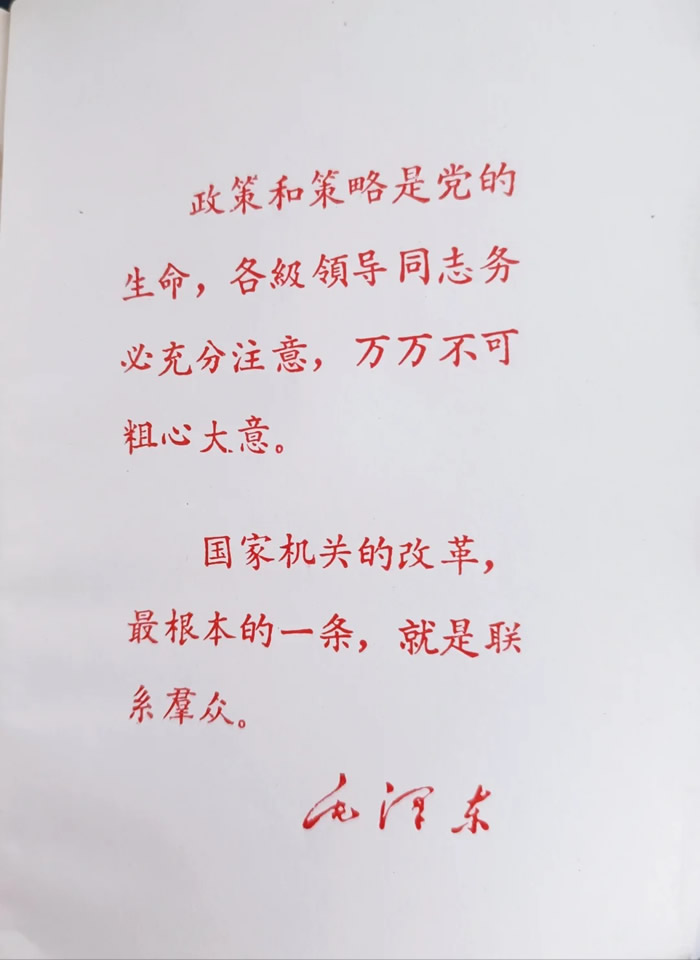 政策和策略是党的
生命，各級領导同志务
必充分注意，万万不可
粗心大意。
国家机关的改革，
最根本的一条，就是联
系羣众。
毛泽东